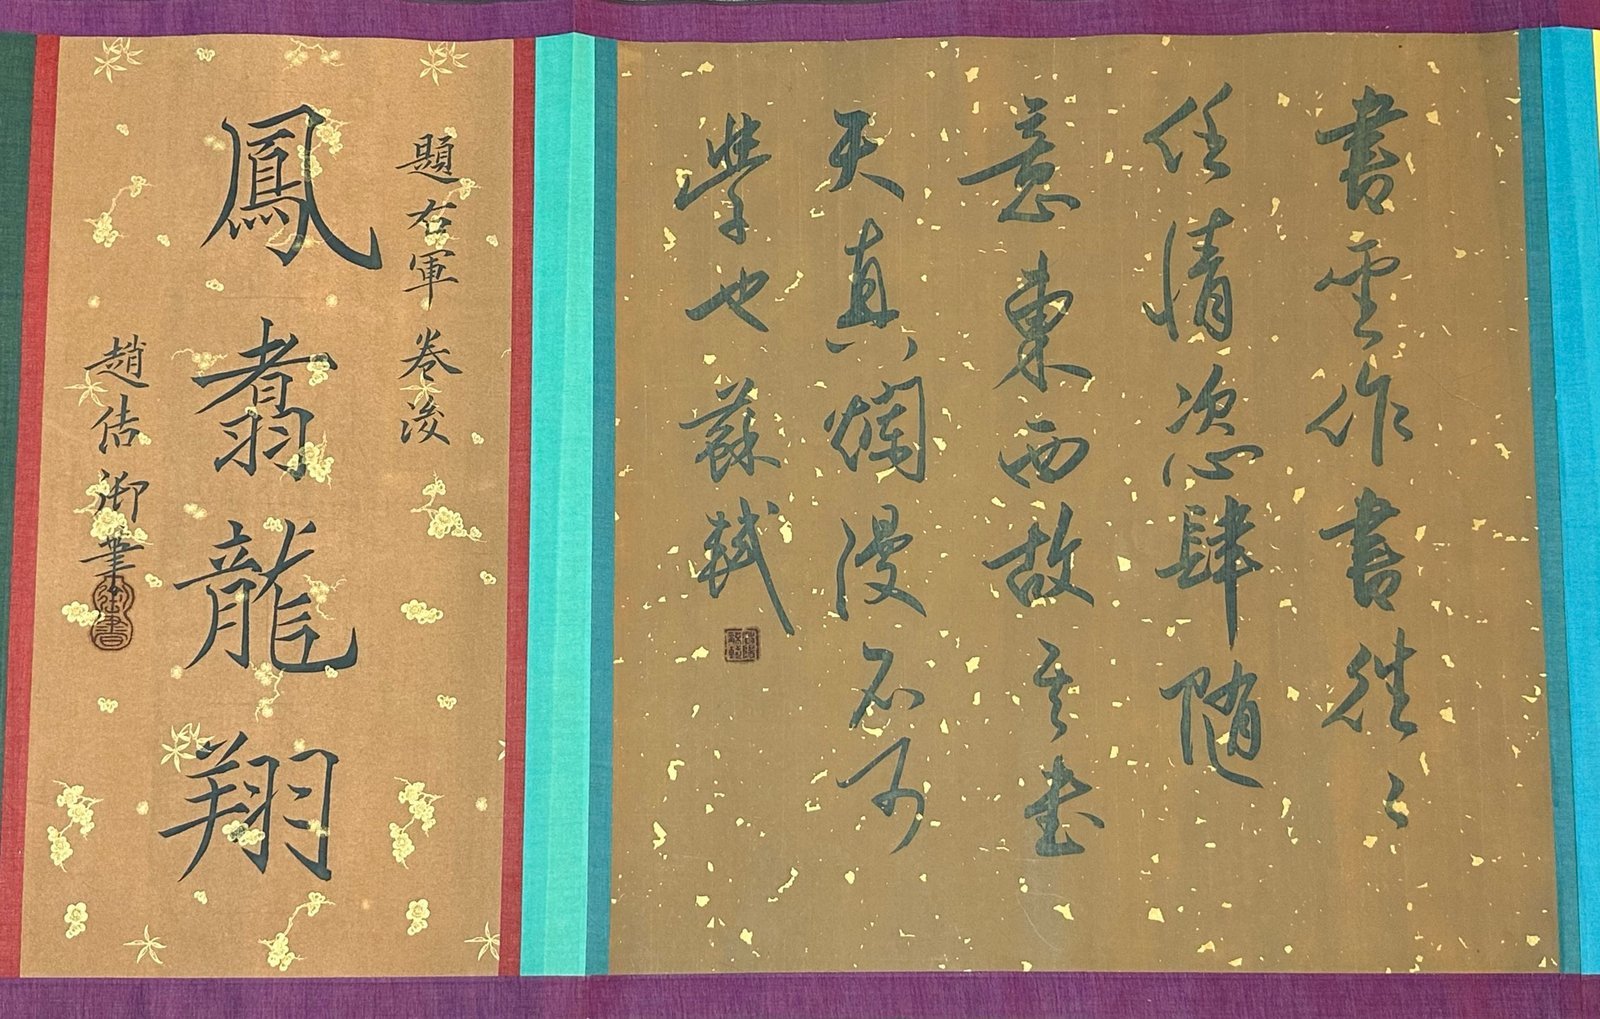 書雲作書往〻
任情恣肆随
意東西故其書
天真爛漫不可
學也蘇軾
題右軍卷浚
鳳翥龍翔
趙佶御筆
御書